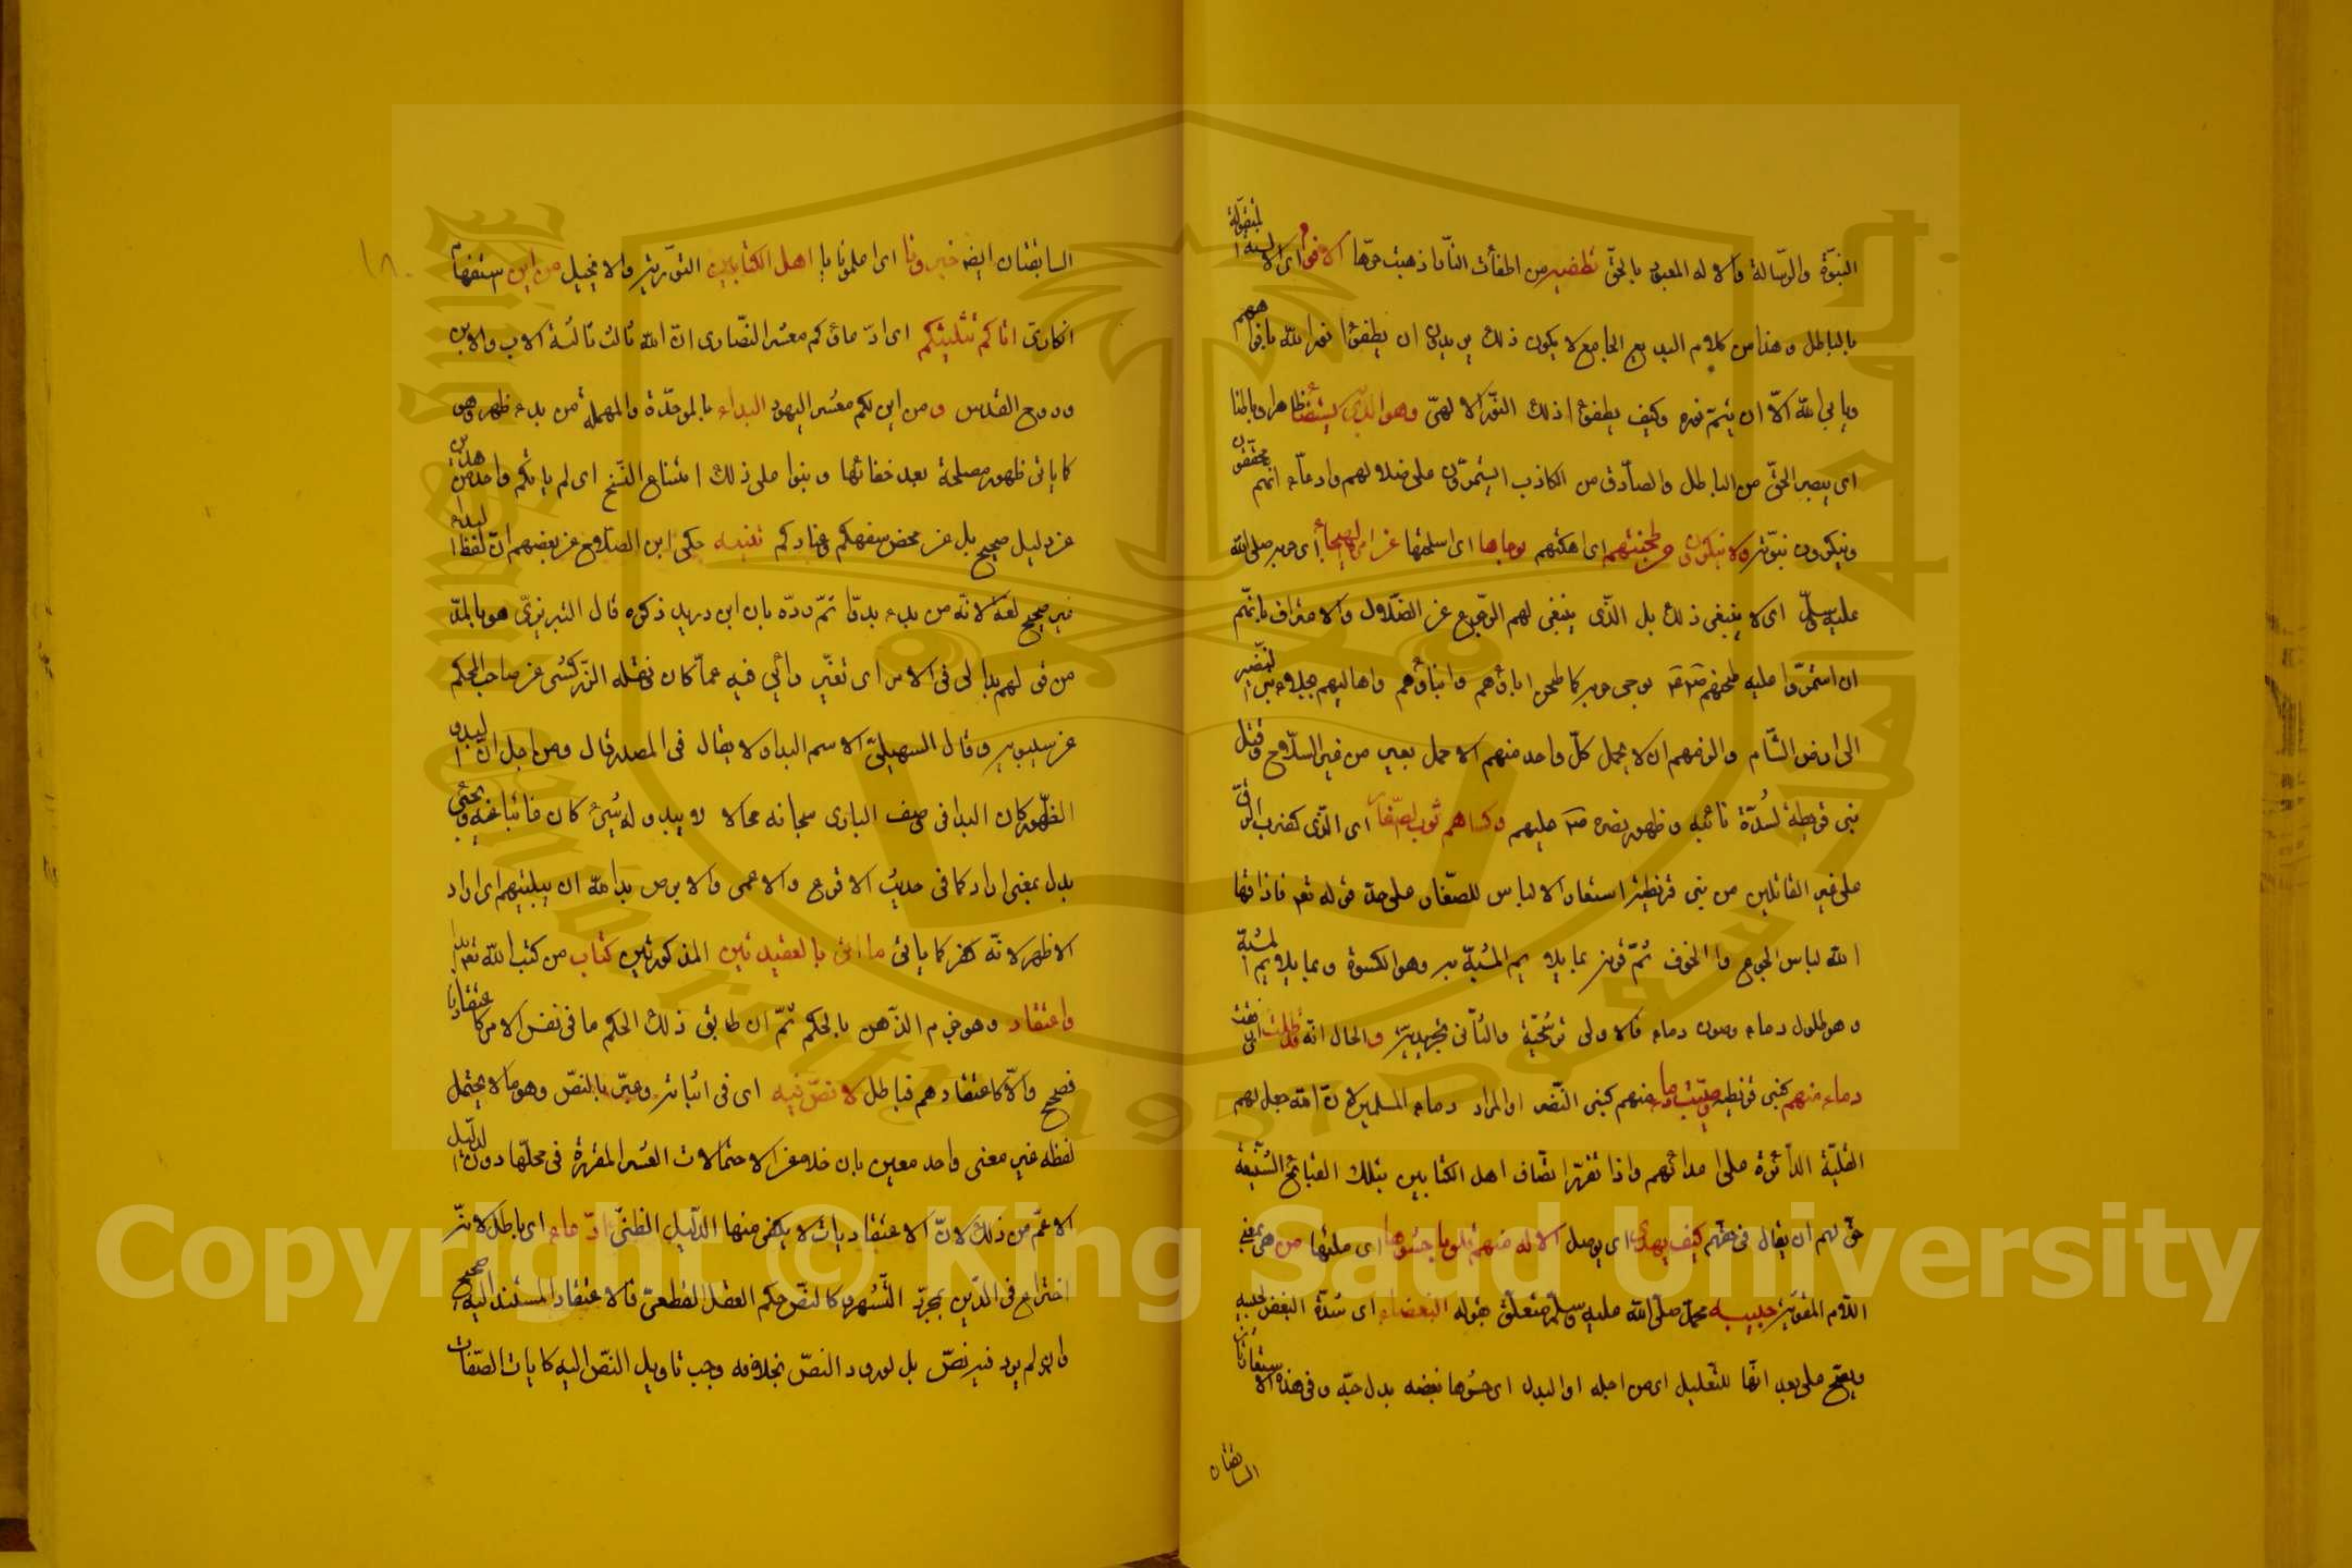 النبوّة والرّسالة والاله المعبود بالحق تطفيه من اطفأت النّار اذهبت حرّها الافواه اى الالسنة المتقوّلة
بالباطل وهذا من كلام البديع الجامع لا يكون ذلك يريدون ان يطفؤا نور الله بافواههم
ويابى الله الاّ ان يتمّ نوره وكيف يطفؤا ذلك النّور الالهىّ وهو الذى يستضا ظاهرا وباطنا
اى يبصر الحقّ من الباطل والصادق من الكاذب ايستمرّون على ضلالهم وادعاء انهم محققون
وينكرون نبوّته ولا ينكرون طحنتهم اى اهلكتهم برحاها اى اسلحتها عن امره الهيجاء اى حربه صلى الله
عليه وسلّم اى لا ينبغى ذلك بل الذّى ينبغى لهم الرّجوع عن الضّلال والاعتراف بانّهم
ان استمرّوا عليه طحنهم برحى حربه كما طحن اباؤهم وابناؤهم واهاليهم بجلاء بنى النّضير
الى ارض الشّام والزمهم ان لا يحمل كلّ واحد منهم الا حمل بعير من غير السلاح وقتل
بنى قريظة لشدّة تأنيه وظهور نصره عليهم وكساهم ثوب الصّغار اى الذّى كضرب الرّقّ
على غير القاتلين من بنى قريظة استعار الالباس للصّغار على حدّ قوله تعا فاذاقها
الله لباس الجوع والخوف ثمّ قرنه بما يلايم المشبّه به وهو الكسوة وبما يلايم المشبّه
وهو طلول دماء وصون دماء فالاولى ترشيحيّة والثّانى تجريديّة والحال انّه قد طلت
دماء منهم كبنى قريظه وصينت دماء منهم كبنى النّضير او المراد دماء المسلمين لانّ الله جعل لهم
الغلبة الدائمة على اعدائهم واذا تقرّر اتّصاف اهل الكتابين بتلك القبائح الشّنيعة
حق لهم ان يقال فى حقّهم كيف يهدى اى يوصل الاله منهم قلوبا حشوها اى ملئها من هى بمعنى
اللام المقوّية حبيبه محمّد صلّى الله عليه وسلّم متعلّق بقوله البغضاء اى شدّة البغض لحبيبه
ويصحّ على بعد انّها للتّعليل اى من اجله او البدل اى حشوها بغضه بدل حبّه وفى هذه الاستعارتان
السابقتان
السابقتان ايضا خبرونا اى اعلمونا يا اهل الكتابين التوّرية والانجيل من اين استفهام
انكارىّ اتاكم تثليثكم اى ادّعاؤكم معشر النّصارى انّ الله ثالث ثلاثة الاب والابن
وروح القدس ومن اين لكم معشر اليهود البداء بالموحّدة والمهملة من بدء ظهر وهو
كما ياتى ظهور مصلحة بعد خفائها وبنوا على ذلك امتناع النّسخ اى لم ياتكم واحد من هذين
عن دليل صحيح بل عن محض سفهكم وعنادكم تنبيه حكى ابن الصّلاح عن بعضهم انّ لفظ البداء
غير صحيح لغة لانّه من بدء بدوّا ثمّ ردّه بان ابن دريد ذكره قال التبريزىّ هو بالمدّ
من قولهم بدا لى فى الامر اى تغيّر رأيى فيه عمّا كان نقله الزّركشى عن صاحب المحكم
عن سيبويه وقال السهيلىّ الاسم البداء ولا يقال فى المصدر قال ومن اجل انّ البدو
الظّهور كان البدا فى وصف البارى سبحانه محالا لا يبدو له شئ كان غائبا عنه ويجئى
بدل بمعنى اراد كما فى حديث الاقرع والاعمى والابرص بدا لله ان يبليتهم اى اراد
الاظهر لانّه كفر كما ياتى ما اتى بالعقيدتين المذكورتين كتاب من كتب الله تعا
واعتقاد وهو جزم الذّهن بالحكم ثمّ ان طابق ذلك الحكم ما فى نفس الامر كاعتقادنا
فصحيح والاّ كاعتقادهم فباطل لا نصّ فيه اى فى اثباته وعبّر بالنصّ وهو ما لا يحتمل
لفظه غير معنى واحد معين بان خلا عن الاحتمالات العشر المقرّرة فى محلّها دون الدليل
الاعمّ من ذلك لانّ الاعتقاديات لا يكفى منها الدّليل الظّنىّ ادّعاء اى باطل لانّه
اختراع فى الدّين بمجرّد التّشهى وكالنصّ حكم العقل القطعىّ فالاعتقاد المستند اليه صحيح
وان لم يرد فيه نصّ بل لو ورد النصّ بخلافه وجب تاويل النّصّ اليه كايات الصّفات
Copyright © King Saud University
King Saud University
جامعة الملك سعود
1957